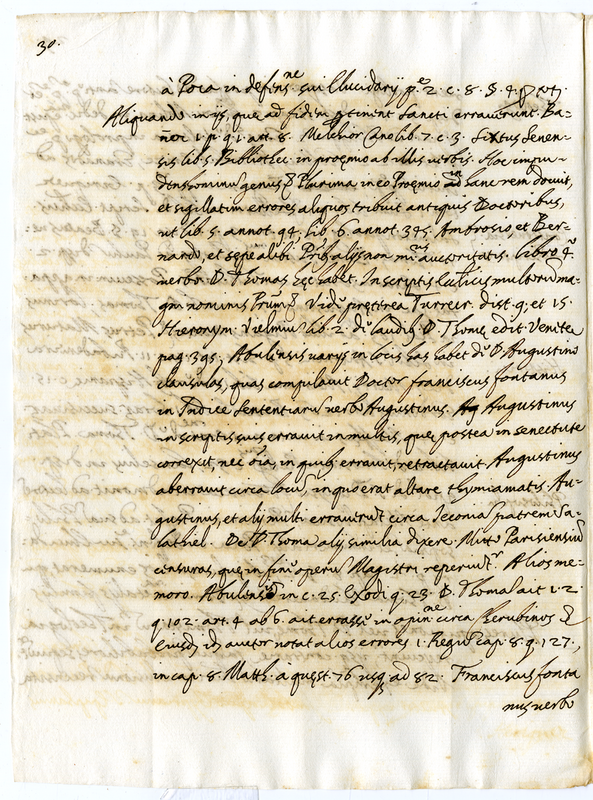 30.
à Poza in defens.ne sui Elucidarij p.e 2. c. 8. §. 4.
Aliquando in ijs, que ad fidem ptinent Sancti errauerunt. Ba-
ñez 1. p. q. 1. art. 8. Melchior Cano lib. 7. c. 3. Sixtus Senen-
sis lib. 5. Bibliothec. in proęmio ab illis uerbis. Hoc
hominũ genus & Plurima in eo Proęmio in hanc rem docuit,
et sigillatim errores aliquos tribuit antiquis Doctoribus,
ut lib. 5. annot. 94. lib. 6. annot. 345. Ambrosio, et Ber-
nardo, et sępe alibi alijs non auctoritatis. libro 4.
uerbo D. Thomas hęc habet. In scriptis multorũ ma-
gni nominis Vidẽ pręterea Turrecr. dist. 9. et 15.
Hieronym. Vielmiũ lib. 2. de laudib. D. Thomę edit. Venetę
pag. 395. Abulensis uarijs in locis has habet de D. Augustino
clausulas, quas compilauit Doctor franciscus fontanus
in Indice sententiarũ uerbo Augustinus. Augustinus
in scriptis suis errauit in multis, quę postea in senectute
correxit, nec õia, in quib. errauit, retractauit. Augustinus
aberrauit circa locũ, in quo erat altare thymiamatis. Au-
gustinus, et alij multi errauerũt circa Ieconiã patrem Sa-
lathiel. De D. Thoma alij similia dixere. Mitto Parisiensiũ
censuras, quę in fine operũ Magistri reperiũt.r Alios me-
moro. Abulensis in c. 25. Exodi q. 23. D. Thomas ait 1. 2.
q. 102. art. 4. ab 6. ait errasse in opin.ne circa Cherubinos &
Eiusd. idẽ auctor notat alios errores 1. Regũ cap. 8. q. 127.,
in cap. 8. Matth. à quęst. 76. usq. ad 82. Franciscus fonta
nus uerbo